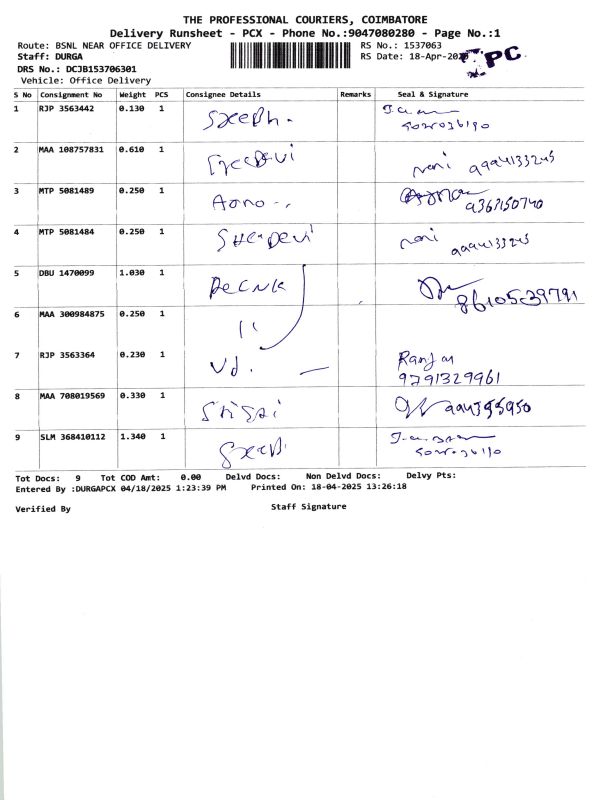 THE PROFESSIONAL COURIERS, COIMBATORE
Delivery Runsheet - PCX - Phone No.:9047080280 - Page No.:1
Route: BSNL NEAR OFFICE DELIVERY
RS No.: 1537063
Staff: DURGA
RS Date: 18-Apr-
PC
DRS No.: DCJB153706301
Vehicle: Office Delivery
S No Consignment No Weight PCS Consignee Details Remarks Seal & Signature
1 RJP 3563442 0.130 1
2 MAA 108757831 0.610 1 nani 9994133245
3 MTP 5081489 0.250 1 9367150740
4 MTP 5081484 0.250 1 nani 9994133245
5 DBU 1470099 1.030 1 8610539791
6 MAA 300984875 0.250 1 11
7 RJP 3563364 0.230 1 Vd. Ranjan
9791329961
8 MAA 708019569 0.330 1
9 SLM 368410112 1.340 1
Tot Docs: 9 Tot COD Amt: 0.00 Delvd Docs: Non Delvd Docs: Delvy Pts:
Entered By :DURGAPCX 04/18/2025 1:23:39 PM Printed On: 18-04-2025 13:26:18
Verified By Staff Signature